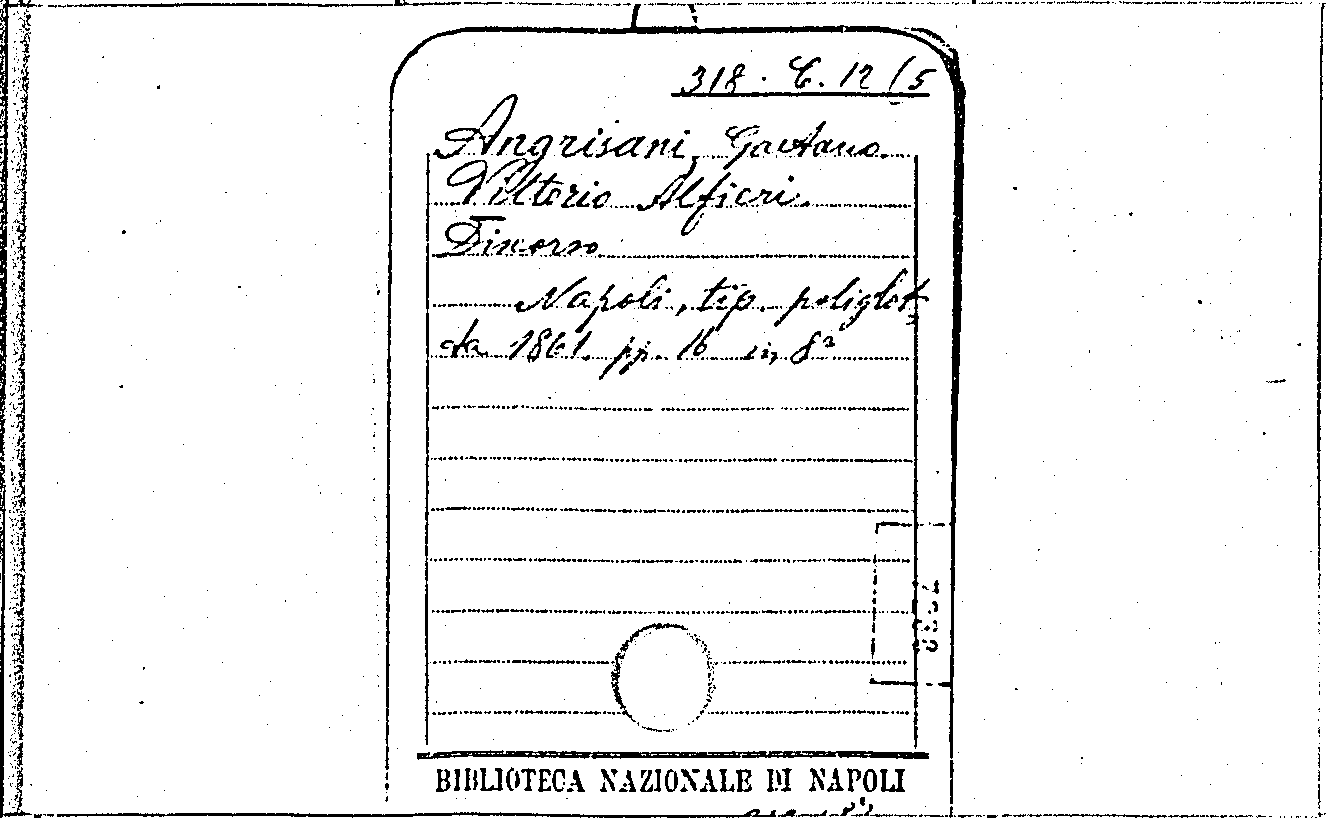 318. C. 12 (5
Angrisani, Gaetano
Vittorio Alfieri.
Discorso
Napoli, tip. poliglot
ta 1861. pp. 16 in 8º
BIBLIOTECA NAZIONALE DI NAPOLI